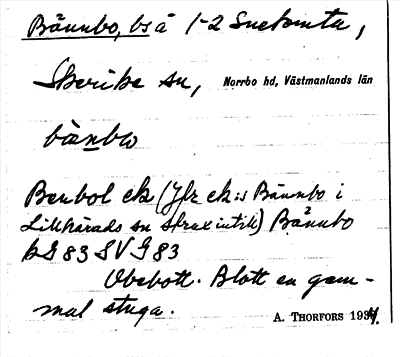 Bännbo, bs å 1-2 Snetomta,
Skerike sn, Norrbo hd, Västmanlands län
bànbω
Benbol ek (Jfr ek:s Bännbo i
Lillhärads sn strax intill) Bännbo
kG 83 SVG 83
Obebott. Blott en gam-
mal stuga.
A. THORFORS 1934.